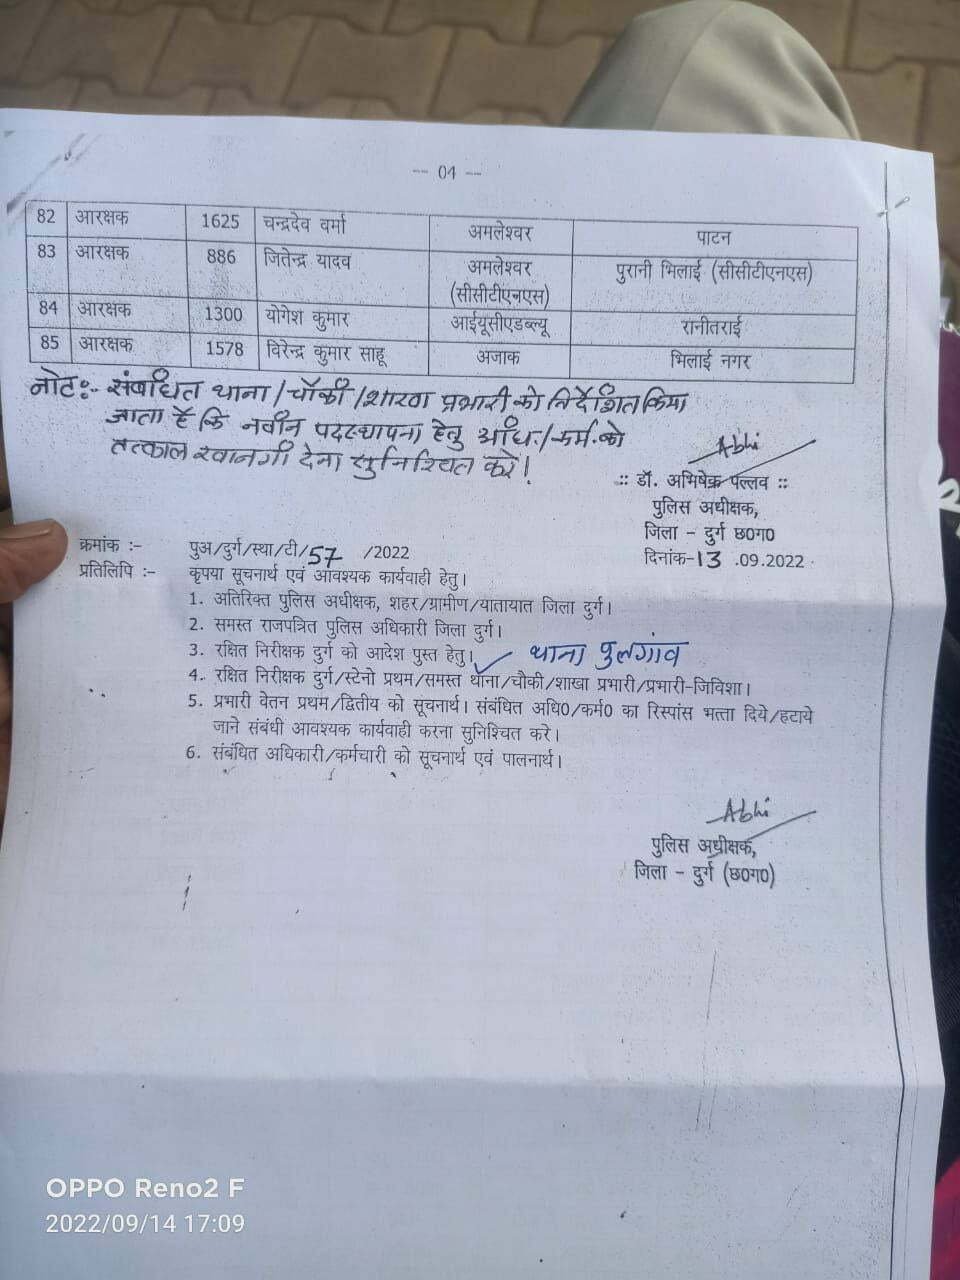 -- 04 --
82 आरक्षक 1625 चन्द्रदेव वर्मा अमलेश्वर पाटन
83 आरक्षक 886 जितेन्द्र यादव अमलेश्वर (सीसीटीएनएस) पुरानी भिलाई (सीसीटीएनएस)
84 आरक्षक 1300 योगेश कुमार आईयूसीएडब्ल्यू रानीतराई
85 आरक्षक 1578 विरेन्द्र कुमार साहू अजाक भिलाई नगर
नोट:- संबंधित थाना/चौकी/शाखा प्रभारी को निर्देशित किया
जाता है कि नवीन पदस्थापना हेतु अधि./कर्म. को
तत्काल रवानगी देना सुनिश्चित करे!
Abhi
:: डॉ. अभिषेक पल्लव ::
पुलिस अधीक्षक,
जिला - दुर्ग छ0ग0
दिनांक-13 .09.2022
क्रमांक :- पुअ/दुर्ग/स्था/टी/57 /2022
प्रतिलिपि :- कृपया सूचनार्थ एवं आवश्यक कार्यवाही हेतु।
1. अतिरिक्त पुलिस अधीक्षक, शहर/ग्रामीण/यातायात जिला दुर्ग।
2. समस्त राजपत्रित पुलिस अधिकारी जिला दुर्ग।
3. रक्षित निरीक्षक दुर्ग को आदेश पुस्त हेतु। थाना पुलगांव
4. रक्षित निरीक्षक दुर्ग/स्टेनो प्रथम/समस्त थाना/चौकी/शाखा प्रभारी/प्रभारी-जिविशा।
5. प्रभारी वेतन प्रथम/द्वितीय को सूचनार्थ। संबंधित अधि0/कर्म0 का रिस्पांस भत्ता दिये/हटाये
जाने संबंधी आवश्यक कार्यवाही करना सुनिश्चित करे।
6. संबंधित अधिकारी/कर्मचारी को सूचनार्थ एवं पालनार्थ।
Abhi
पुलिस अधीक्षक,
जिला - दुर्ग (छ0ग0)
OPPO Reno2 F
2022/09/14 17:09